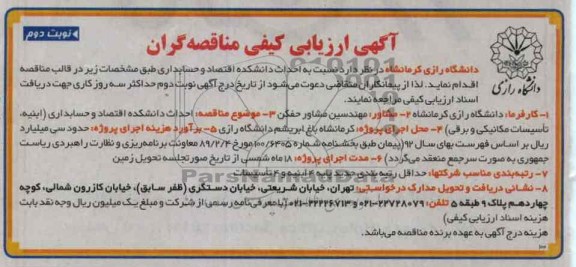 نوبت دوم
آگهی ارزیابی کیفی مناقصه‌گران
دانشگاه رازی
دانشگاه رازی کرمانشاه در نظر دارد نسبت به احداث دانشکده اقتصاد و حسابداری طبق مشخصات زیر در قالب مناقصه
اقدام نماید. لذا از پیمانکاران متقاضی دعوت می‌شود از تاریخ درج آگهی نوبت دوم حداکثر سه روز کاری جهت دریافت
اسناد ارزیابی کیفی مراجعه نمایند.
۱- کارفرما: دانشگاه رازی کرمانشاه ۲- مشاور: مهندسین مشاور حفکن ۳- موضوع مناقصه: احداث دانشکده اقتصاد و حسابداری (ابنیه،
تأسیسات مکانیکی و برقی) ۴- محل اجرای پروژه: کرمانشاه باغ ابریشم دانشگاه رازی ۵- برآورد هزینه اجرای پروژه: حدود سی میلیارد
ریال بر اساس فهرست بهای سال ۹۲ (پیمان طبق بخشنامه شماره ۱۰۰/۶۴۰۵ مورخ ۸۹/۲/۴ معاونت برنامه‌ریزی و نظارت راهبردی ریاست
جمهوری به صورت سرجمع منعقد می‌گردد) ۶- مدت اجرای پروژه: ۱۸ ماه شمسی از تاریخ صورتجلسه تحویل زمین
۷- رتبه‌بندی مناسب شرکتها: حداقل رتبه بندی جدید پایه ۴ ابنیه و ۴ تأسیسات
۸- نشانی دریافت و تحویل مدارک درخواستی: تهران، خیابان شریعتی، خیابان دستگری (ظفر سابق)، خیابان کازرون شمالی، کوچه
چهاردهم پلاک ۹ طبقه ۵ تلفن: ۲۲۷۲۸۰۷۹-۰۲۱ و ۲۲۲۲۶۷۱۳-۰۲۱ (با معرفی‌نامه رسمی از شرکت و مبلغ یک میلیون ریال وجه نقد بابت
هزینه اسناد ارزیابی کیفی)
هزینه درج آگهی به عهده برنده مناقصه می‌باشد.
ParsNamadData